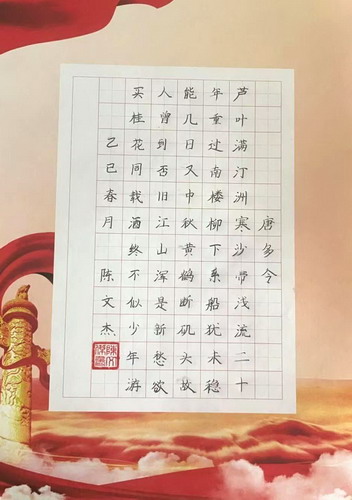 唐多令
芦叶满汀洲寒沙带浅流二十
年重过南楼柳下系船犹未稳
能几日又中秋黄鹤断矶头故
人曾到否旧江山浑是新愁欲
买桂花同载酒终不似少年游
乙巳春月 陈文杰